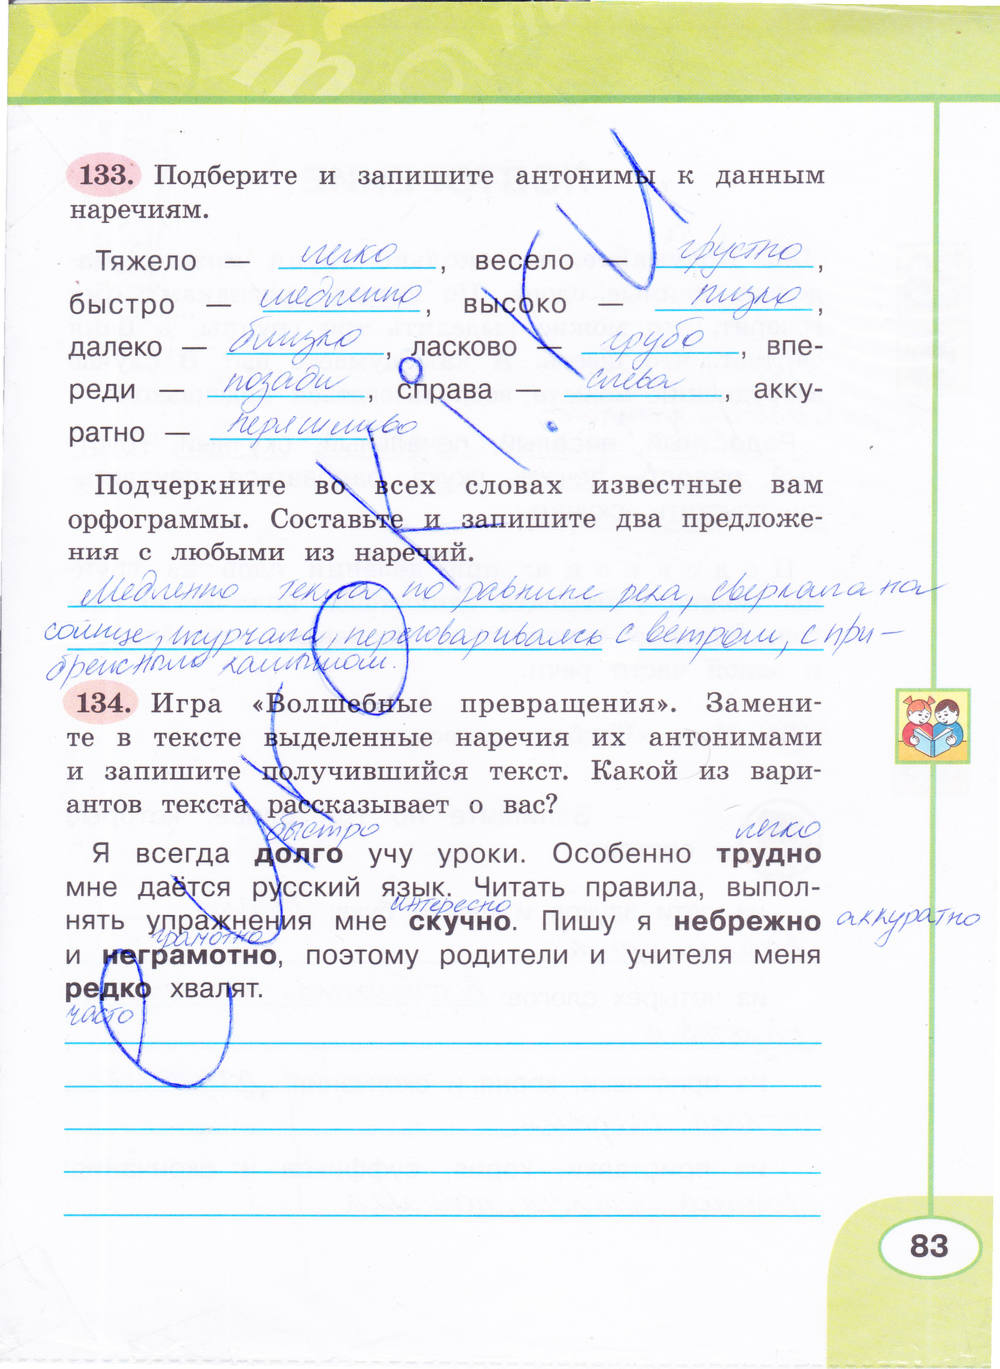 133. Подберите и запишите антонимы к данным
наречиям.
Тяжело легко, весело — грустно,
быстро — медленно, высоко — низко,
далеко — близко, ласково — грубо, впе-
реди — позади, справа — слева, акку-
ратно — неряшливо
Подчеркните во всех словах известные вам
орфограммы. Составьте и запишите два предложе-
ния с любыми из наречий.
Медленно текла по равнине река, сверкала на
солнце, журчала, переговариваясь с ветром, с при-
брежным камышом.
134. Игра «Волшебные превращения». Замени-
те в тексте выделенные наречия их антонимами
и запишите получившийся текст. Какой из вари-
антов текста рассказывает о вас?
быстро легко
Я всегда долго учу уроки. Особенно трудно
мне даётся русский язык. Читать правила, выпол-
интересно
нять упражнения мне скучно. Пишу я небрежно аккуратно
грамотно
и неграмотно, поэтому родители и учителя меня
редко хвалят.
часто
83